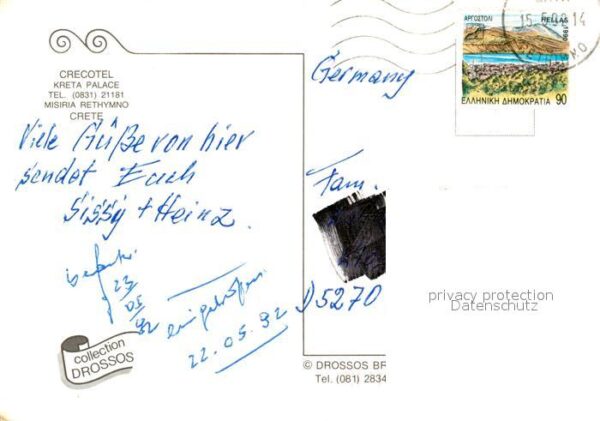 CRECOTEL
KRETA PALACE
TEL. (0831) 21181
MISIRIA RETHYMNO
CRETE
Viele Grüße von hier
sendet Euch
Sissy + Heinz.
23
05
92
22.05.92
collection
DROSSOS
ΑΡΓΟΣΤΟΛΙ
HELLAS
1990
ΕΛΛΗΝΙΚΗ ΔΗΜΟΚΡΑΤΙΑ 90
14
Germany
Fam.
D 5270
privacy protection
Datenschutz
© DROSSOS BR
Tel. (081) 2834